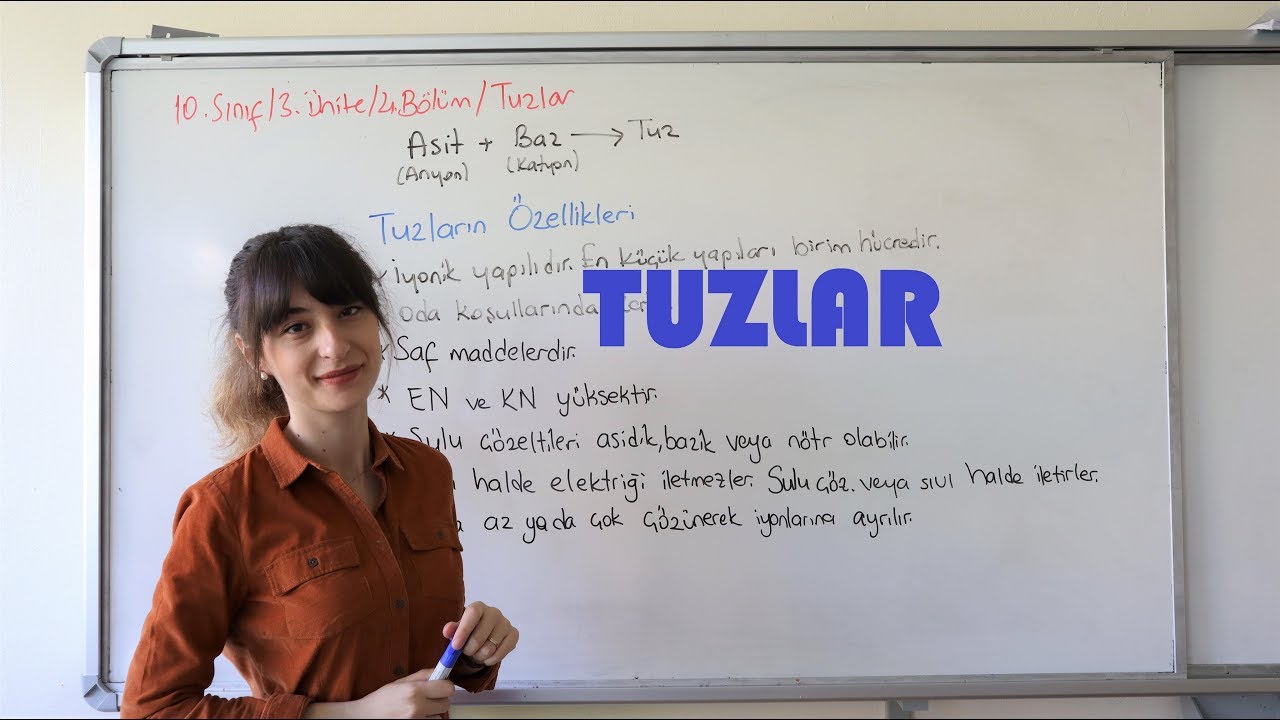 10. Sınıf/3. Ünite/4. Bölüm/Tuzlar
Asit + Baz → Tuz
(Anyon) (Katyon)
Tuzların Özellikleri
* İyonik yapılıdır. En küçük yapıları birim hücredir.
oda koşullarında
TUZLAR
* Saf maddelerdir.
* EN ve KN yüksektir.
* Sulu çözeltileri asidik, bazik veya nötr olabilir.
halde elektriği iletmezler. Sulu çöz. veya sıvı halde iletirler.
az ya da çok çözünerek iyonlarına ayrılır.